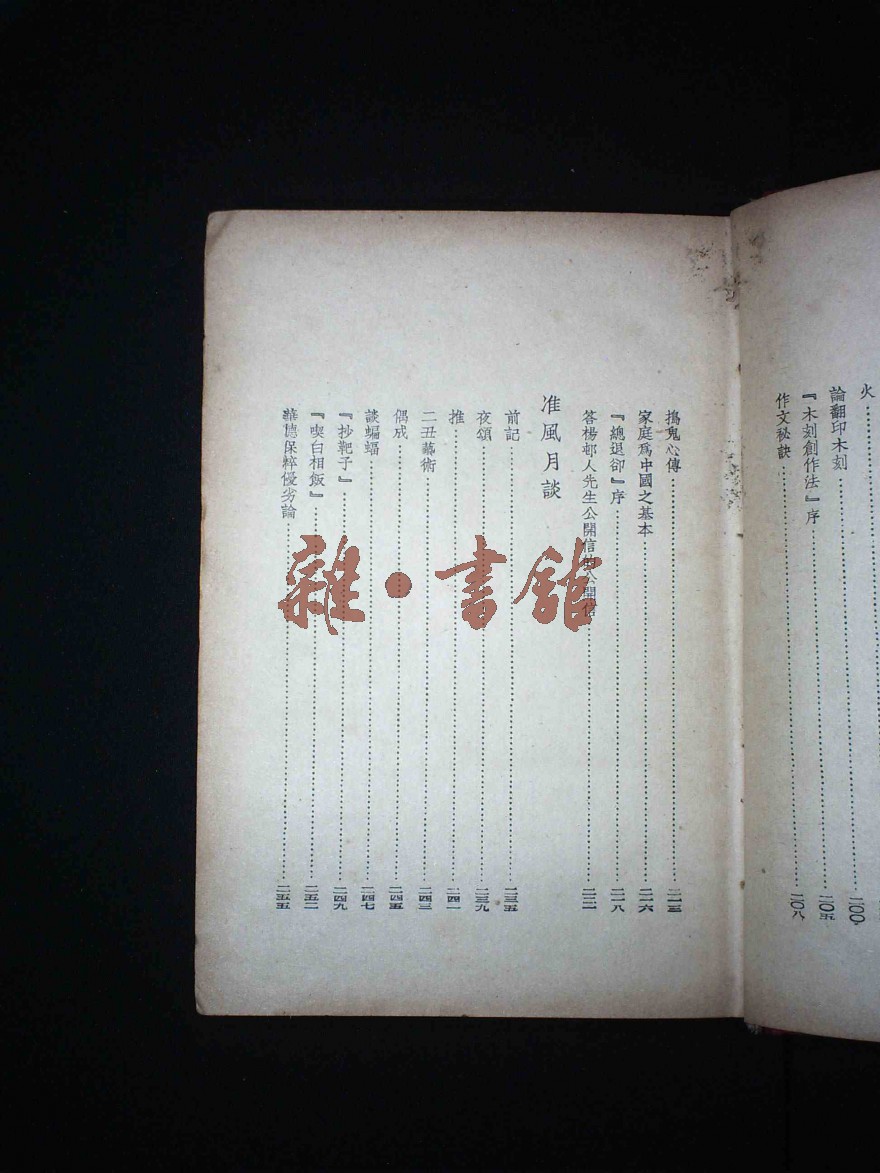 火
論翻印木刻……二〇〇
『木刻創作法』序……二〇五
作文秘訣……二〇八
搗鬼心傳……二一三
家庭爲中國之基本……二一六
『總退卻』序……二一八
答楊邨人先生公開信的公開信……二二一
准風月談
前記……二三五
夜頌……二三九
推……二四一
二丑藝術……二四三
偶成……二四五
談蝙蝠……二四七
『抄靶子』……二四九
『喫白相飯』……二五二
華德保粹優劣論……二五五
雜·書館